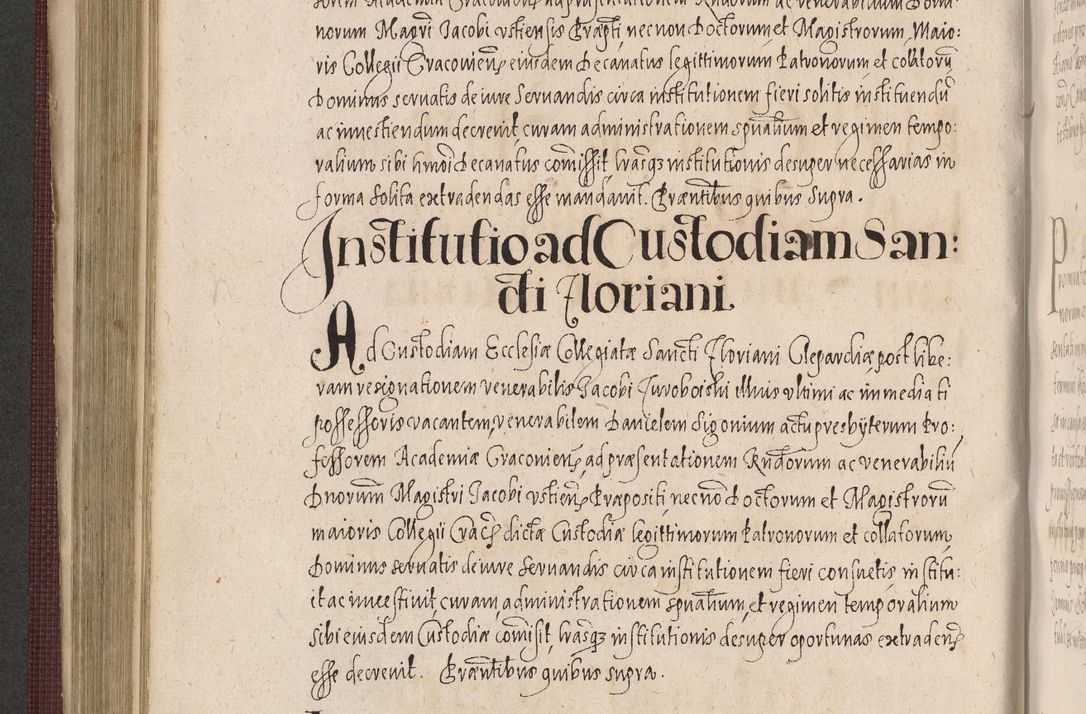 norum Magri Jacobi vstiensis Præpti, necnon Doctorum et Magistrorum, Maio:
ris Collegii Cracovien̄ eiusdem Decanatus legittimorum Patronorum et collatorū
Dominus servatis de iure Servandis circa institutionem fieri solitis instituendū
ac investiendum decrevit, curam administrationem spūalium et regimen tempo:
ralium sibi hm̄oi Decanatus com̄issit, lr̄asq̄ institutionis desuper necessarias in
forma Solita extradendas esse mandavit. Præntibus quibus Supra.
Institutio ad Custodiam San:
cti Floriani.
Ad Custodiam Ecclesiæ Collegiatæ Sancti Floriani Clepardiæ post libe:
ram resignationem venerabilis Jacobi Juroboiski illius ultimi ac immediati
possessoris vacantem, venerabilem Danielem Sigonium actu presbÿterum Pro:
fessorem Academiæ Cracovien̄, ad præsentationem Rndorum ac venerabiliū
Dnorum Magistri Jacobi vstien̄, Præpositi, necnō Doctorum et Magistrorū
maioris Collegii Crac̄ dictæ Custodiæ legittimorum Patronorum et collatorum,
Dominus servatis de iure Servandis circa institutionem fieri consuetis institu:
it ac investivit, curam, administrationem spūalium, et regimen temporalium
sibi eiusdem Custodiæ com̄isit, lr̄asq̄ institutionis desuper oportunas extraden̄
esse decrevit. Præntibus quibus supra.